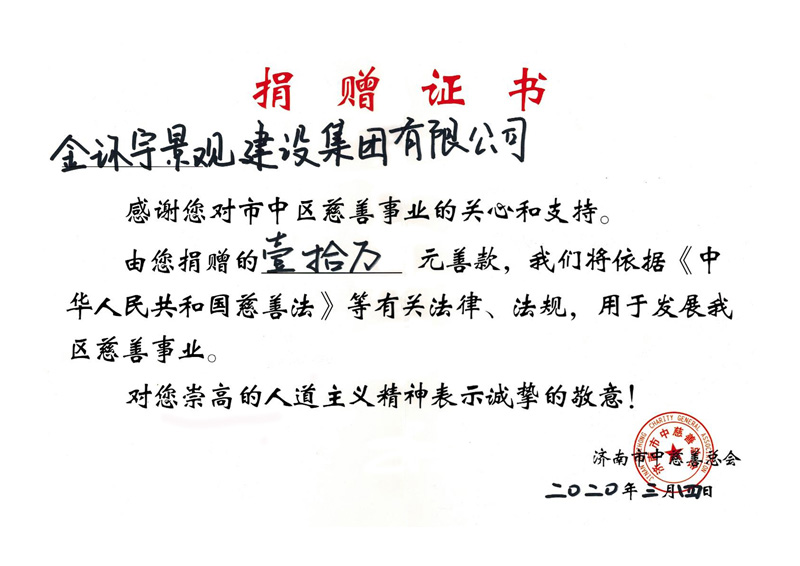 捐赠证书
金环宇景观建设集团有限公司
感谢您对市中区慈善事业的关心和支持。
由您捐赠的壹拾万元善款，我们将依据《中
华人民共和国慈善法》等有关法律、法规，用于发展我
区慈善事业。
对您崇高的人道主义精神表示诚挚的敬意！
济南市中慈善总会
二〇二〇年三月四日
CHARITY GENERAL ASSOCIATION
济南市中慈善总会